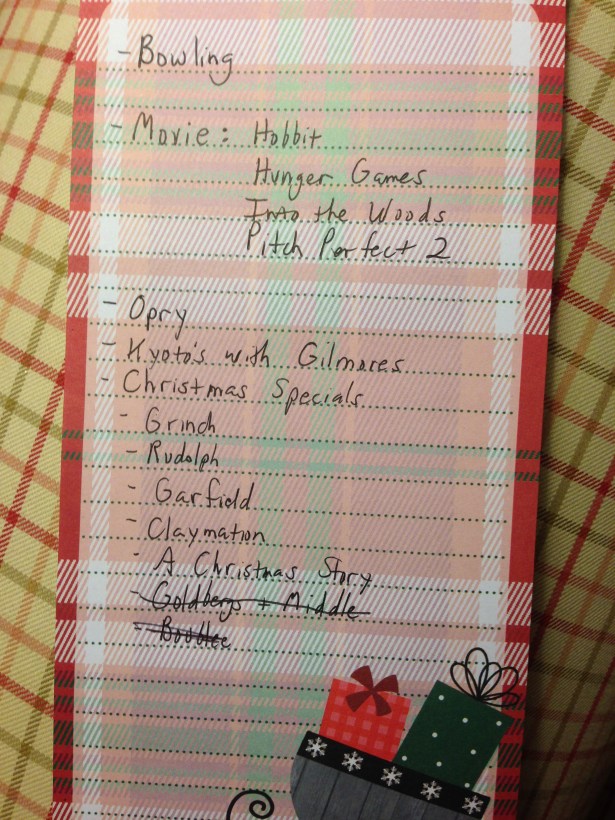 - Bowling
- Movie: Hobbit
Hunger Games
Into the Woods
Pitch Perfect 2
- Opry
- Kyoto's with Gilmores
- Christmas Specials
- Grinch
- Rudolph
- Garfield
- Claymation
- A Christmas Story
- Goldbergs + Middle